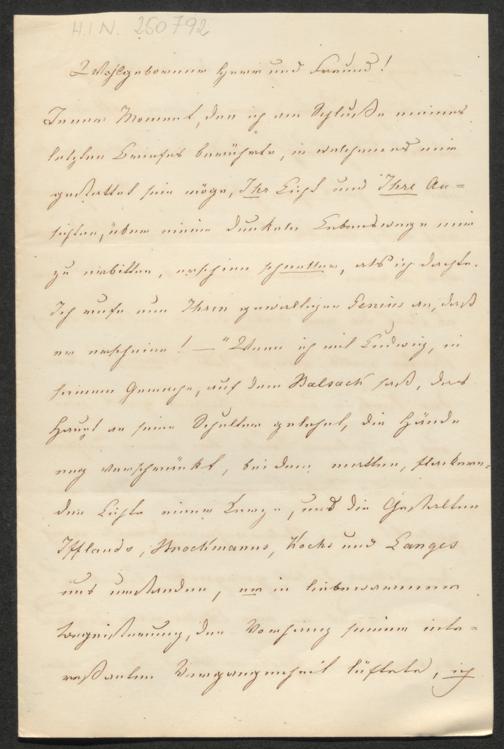 H.I.N. 250792
Wohlgeborener Herr und Freund!
Jener Moment, den ich am Schluße meines
letzten Briefes berührte, in welchem es mir
gestattet sein möge, Ihr Licht und Ihre An=
sichten, über meine dunkeln Lebenswege mir
zu erbitten, erschien schneller, als ich dachte.
Ich rufe nun Ihren gewaltigen Genius an, daß
er erscheine! — "Wenn ich mit Ludwig, in
seinem Gemache, auf dem Balsack saß, das
Haupt an seine Schulter gelehnt, die Hände
eng verschränkt, bei dem matten, flackern=
den Lichte einer Kerze, und die Gestalten
Ifflands, Brockmanns, Kochs und Langes
uns umstanden, er in liebewarmer
Begeisterung, den Vorhang seiner inte=
reßanten Vergangenheit lüftete, ich